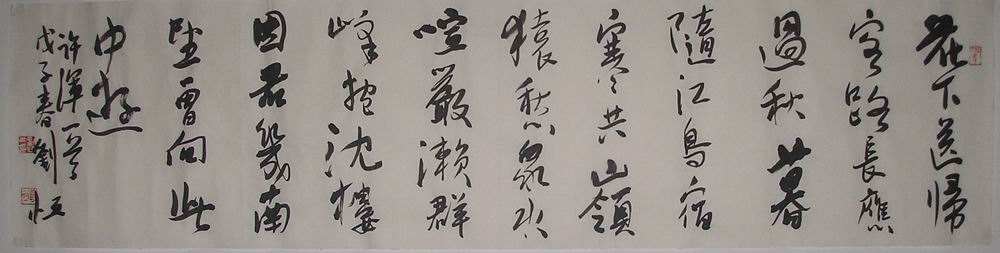 花下送歸
客路長應
過秋暮
隨江鳥宿
寒共嶺
猿愁眾水
喧嚴瀨群
峰抱沈樓
因君幾南
望曾向此
中遊
許渾一首
戊子春劉恒